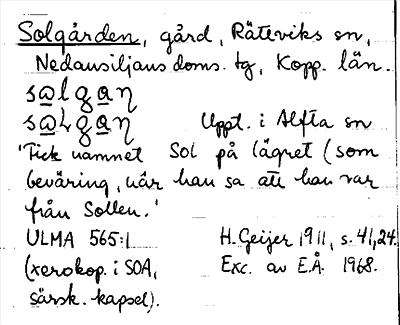 Solgården, gård, Räteviks sn,
Nedansiljans doms. tg, Kopp. län.
sa̲lga̲η
sa̲ɫga̲η Uppt. i Alfta sn
'Fick namnet Sol på lägret (som
beväring, när han sa att han var
från Sollen.'
ULMA 565:1 H. Geijer 1911, s. 41, 24.
(xerokop. i SOA, Exc. av E.Å. 1968.
särsk. kapsel).